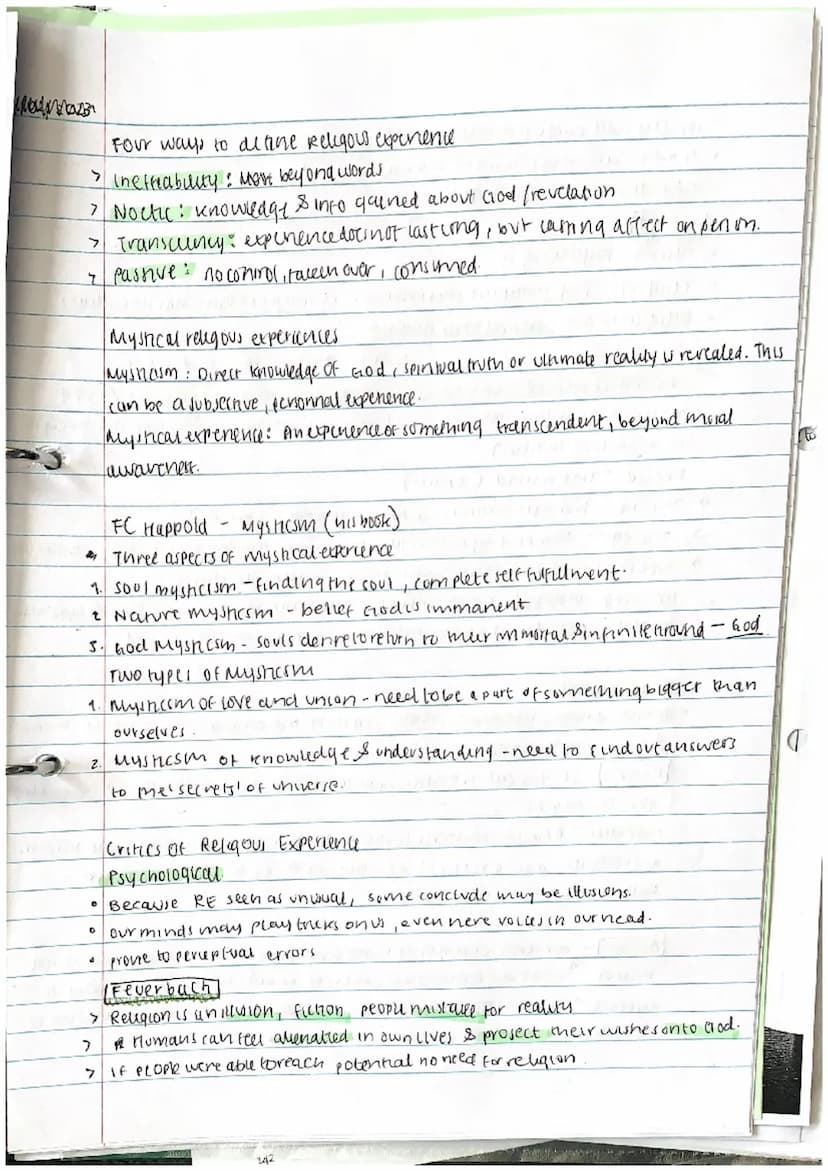 Four ways to define Religous experience
> Ineffability: beyond words
> Noetic: knowledge & info gained about God/revelation
> Transciency: experience does not last long, but lasting affect on person.
> Passive: no control, taken over, consumed.
Mystical religous experiences
Mysticism: Direct knowledge of God, spiritual truth or ultimate reality is revealed. This
can be a subjective, personnal experience.
Mystical experience: An experience of something transcendent, beyond
awareness.
FC Happold - Mysticsm (his book)
Three aspects of mystical experience
1. Soul mysticism - finding the soul, complete self fulfillment.
2 Nature mysticsm - belief God is immanent
3. God Mysticsm - souls desire to return to their immortal & infinite ground - God
Two types of Mysticsm
1. Mysticsm of love and union - need to be a part of something bigger than
ourselves.
2. Mysticsm of knowledge & understanding - need to find out answers
to the 'secrets' of universe.
Critics of Religous Experience
Psychological
• Because RE seen as unusual, some conclude may be illusions.
• our minds may play tricks on us, even here voices in our head.
• prone to perceptual errors
Feuerbach
> Religion is an illusion, fiction, people mistake for reality
> Humans can feel alienated in own lives & project their wishes onto God.
> If people were able to reach potential no need for religion.